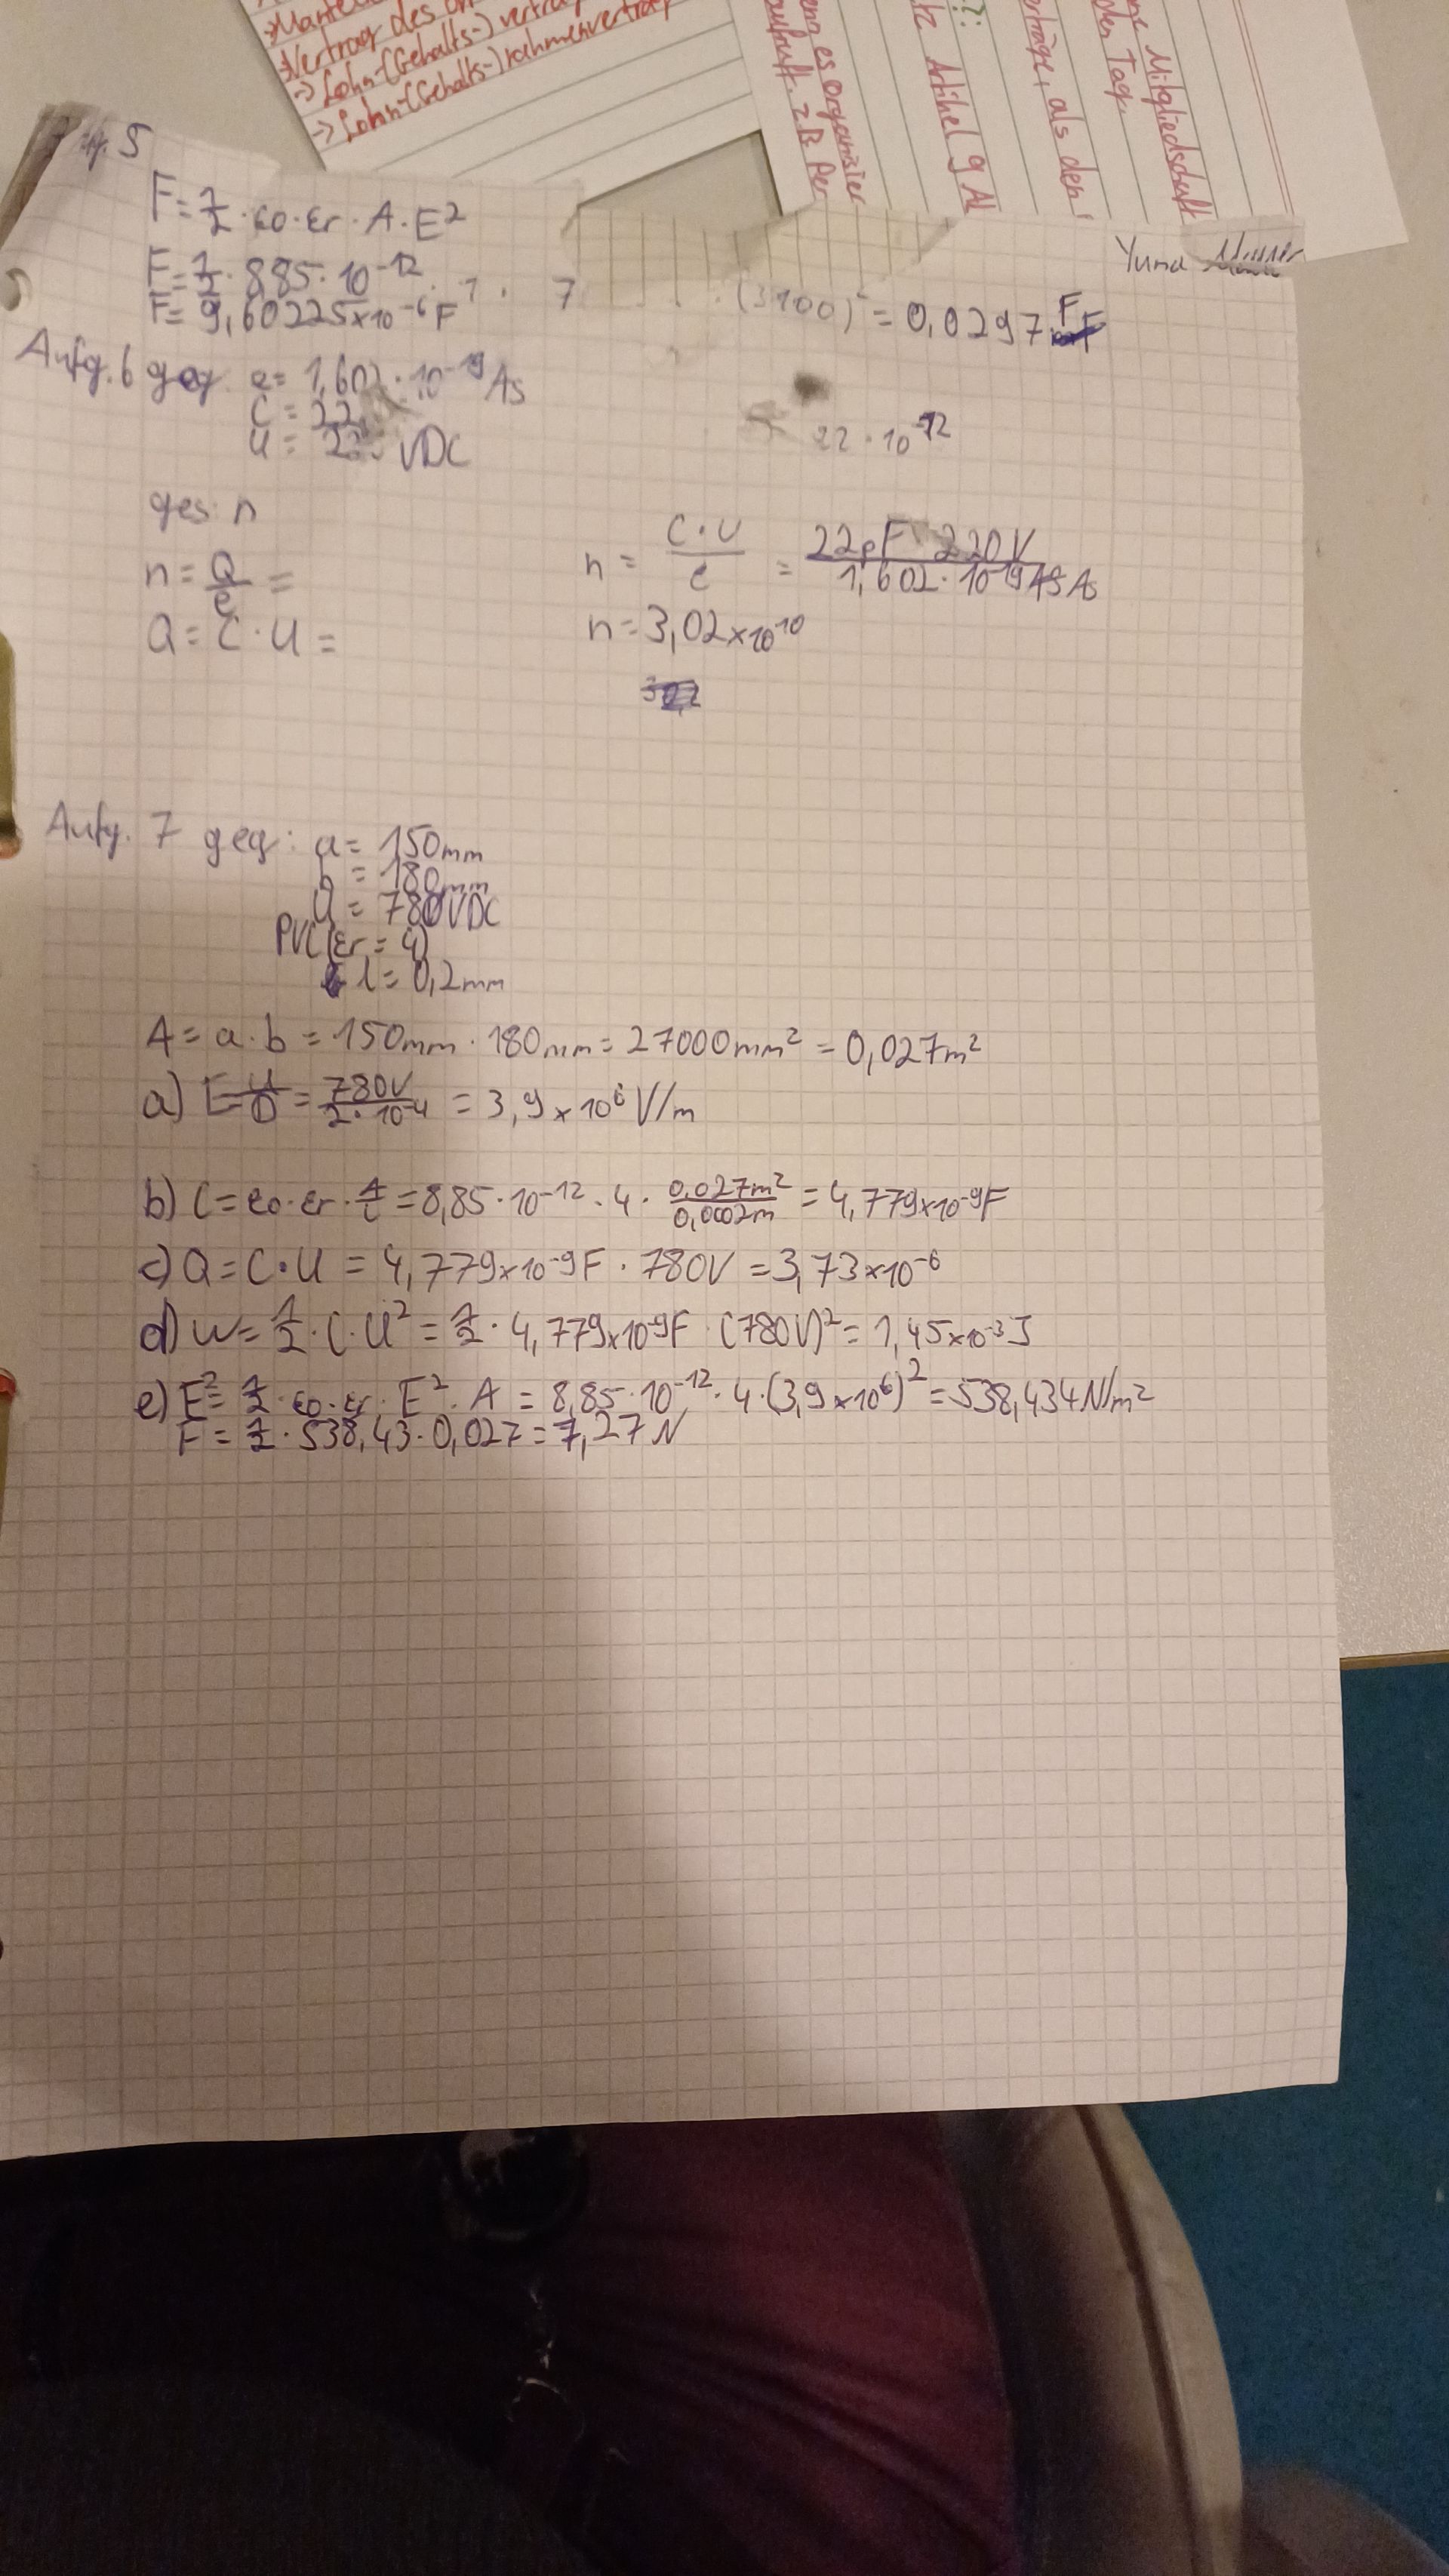 → Vertrag des
→ Lohn-(Gehalts-) vertrag
→ Lohn-(Gehalts-) rahmenvertrag
enn es organisier
z.B. Per
Artikel 9 Ab
erträge, als den
Mitgliedschaft
den Tag.
Yuna
5
F = 1/2 · εo · εr · A · E²
F = 1/2 · 885 · 10⁻¹² · 1 · 7 · (3100)² = 0,0297 F
F = 9,60225x10⁻⁶ F
Aufg. 6 geg e = 1,602 · 10⁻¹⁹ As
C = 22
22 · 10⁻¹²
U = 22 VDC
ges: n
n = Q/e =
n = C·U/e = 22pF 220V / 1,602 · 10⁻¹⁹ As As
Q = C · U =
n = 3,02x10¹⁰
Aufg. 7 geg: a = 150mm
b = 180mm
U = 780VDC
PVC (εr = 4)
l = 0,2mm
A = a · b = 150mm · 180mm = 27000mm² = 0,027m²
a) E = U/D = 780V / 2 · 10⁻⁴ = 3,9 x 10⁶ V/m
b) C = εo · εr · A/l = 8,85 · 10⁻¹² · 4 · 0,027m² / 0,0002m = 4,779x10⁻⁹F
c) Q = C · U = 4,779x10⁻⁹F · 780V = 3,73x10⁻⁶
d) W = 1/2 · C · U² = 1/2 · 4,779x10⁻⁹F · (780V)² = 1,45x10⁻³J
e) E² = 1/2 · εo · εr · E² · A = 8,85 · 10⁻¹² · 4 · (3,9x10⁶)² = 538,434N/m²
F = 1/2 · 538,43 · 0,027 = 7,27N